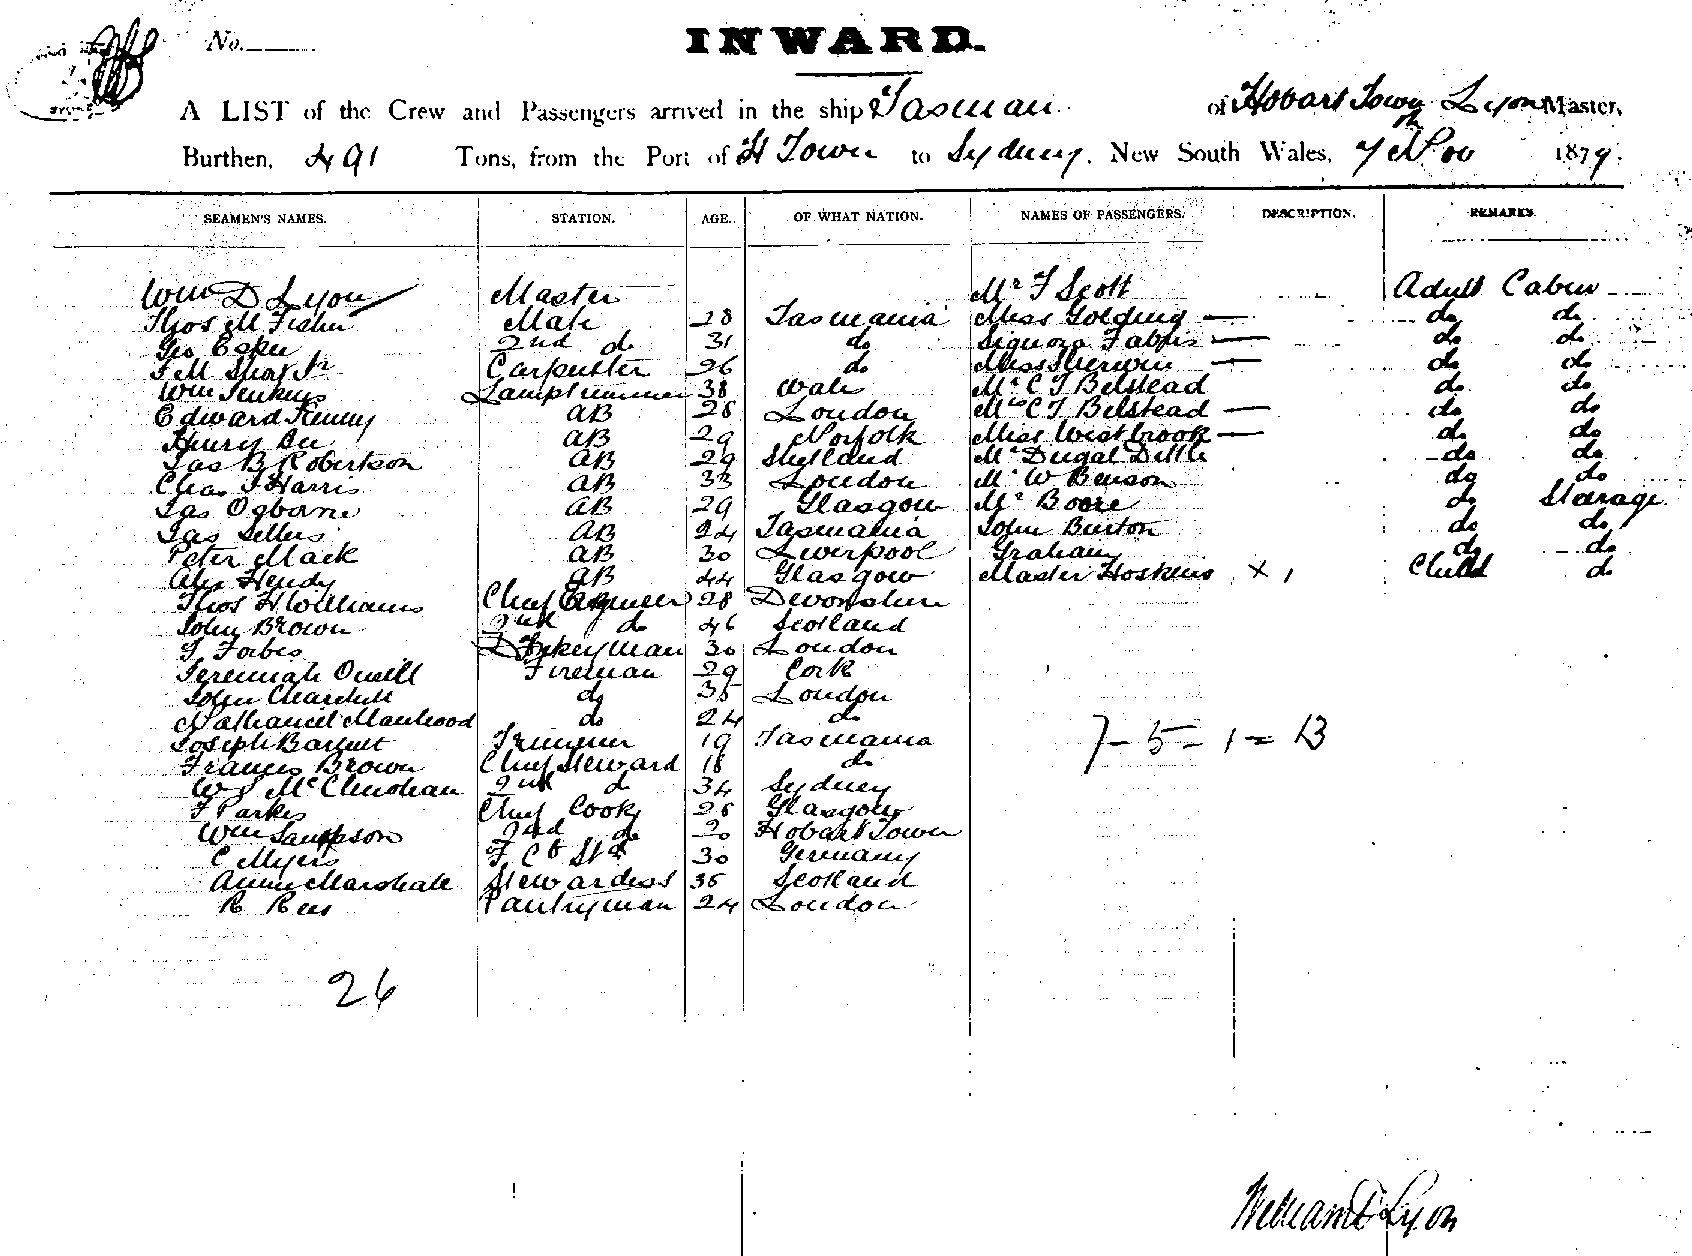 No.
INWARD.
A LIST of the Crew and Passengers arrived in the ship Tasman of Hobart Town Lyon Master,
Burthen, 491 Tons, from the Port of H Town to Sydney, New South Wales, 7th Nov 1879.
SEAMEN'S NAMES. STATION. AGE. OF WHAT NATION. NAMES OF PASSENGERS. DESCRIPTION. REMARKS.
Wm D Lyon Master Mr F Scott Adult Cabin
Thos M Fisher Mate 28 Tasmania Miss Golding — do do
Geo 2nd do 31 do Signora Fabris — do do
Carpenter 26 do Miss Sherwin — do do
Wm Jenkins Lamptrimmer 38 Wales Mr C T Belstead do do
Edward Kenny AB 28 London Mrs C T Belstead — do do
Henry AB 29 Norfolk Miss Westbrook — do do
Jas B Robertson AB 29 Shetland Mr do do
Chas J Harris AB 33 London Mr W Benson do do
Jas Ogborne AB 29 Glasgow Mr do Steerage
Jas Sellers AB 24 Tasmania John Burton do do
Peter Mack AB 30 Liverpool Graham do do
Alex Hendy AB 44 Glasgow Master Hoskins × 1 Child do
Thos H Williams Chief Engineer 28 Devonshire
John Brown 2nd do 46 Scotland
Forbes 30 London
Jeremiah Fireman 29 Cork
John do 35 London
Nathaniel Manhood do 24 do
Joseph Barnett Trimmer 19 Tasmania
Francis Brown Chief Steward 18 do
2nd do 34 Sydney
Parkes Chief Cook 28 Glasgow
Wm Sampson 2nd do 20 Hobart Town
C Myers 30 Germany
Annie Marshall Stewardess 35 Scotland
R Rees Pantryman 24 London
7 - 5 - 1 = 13
26
William D Lyon